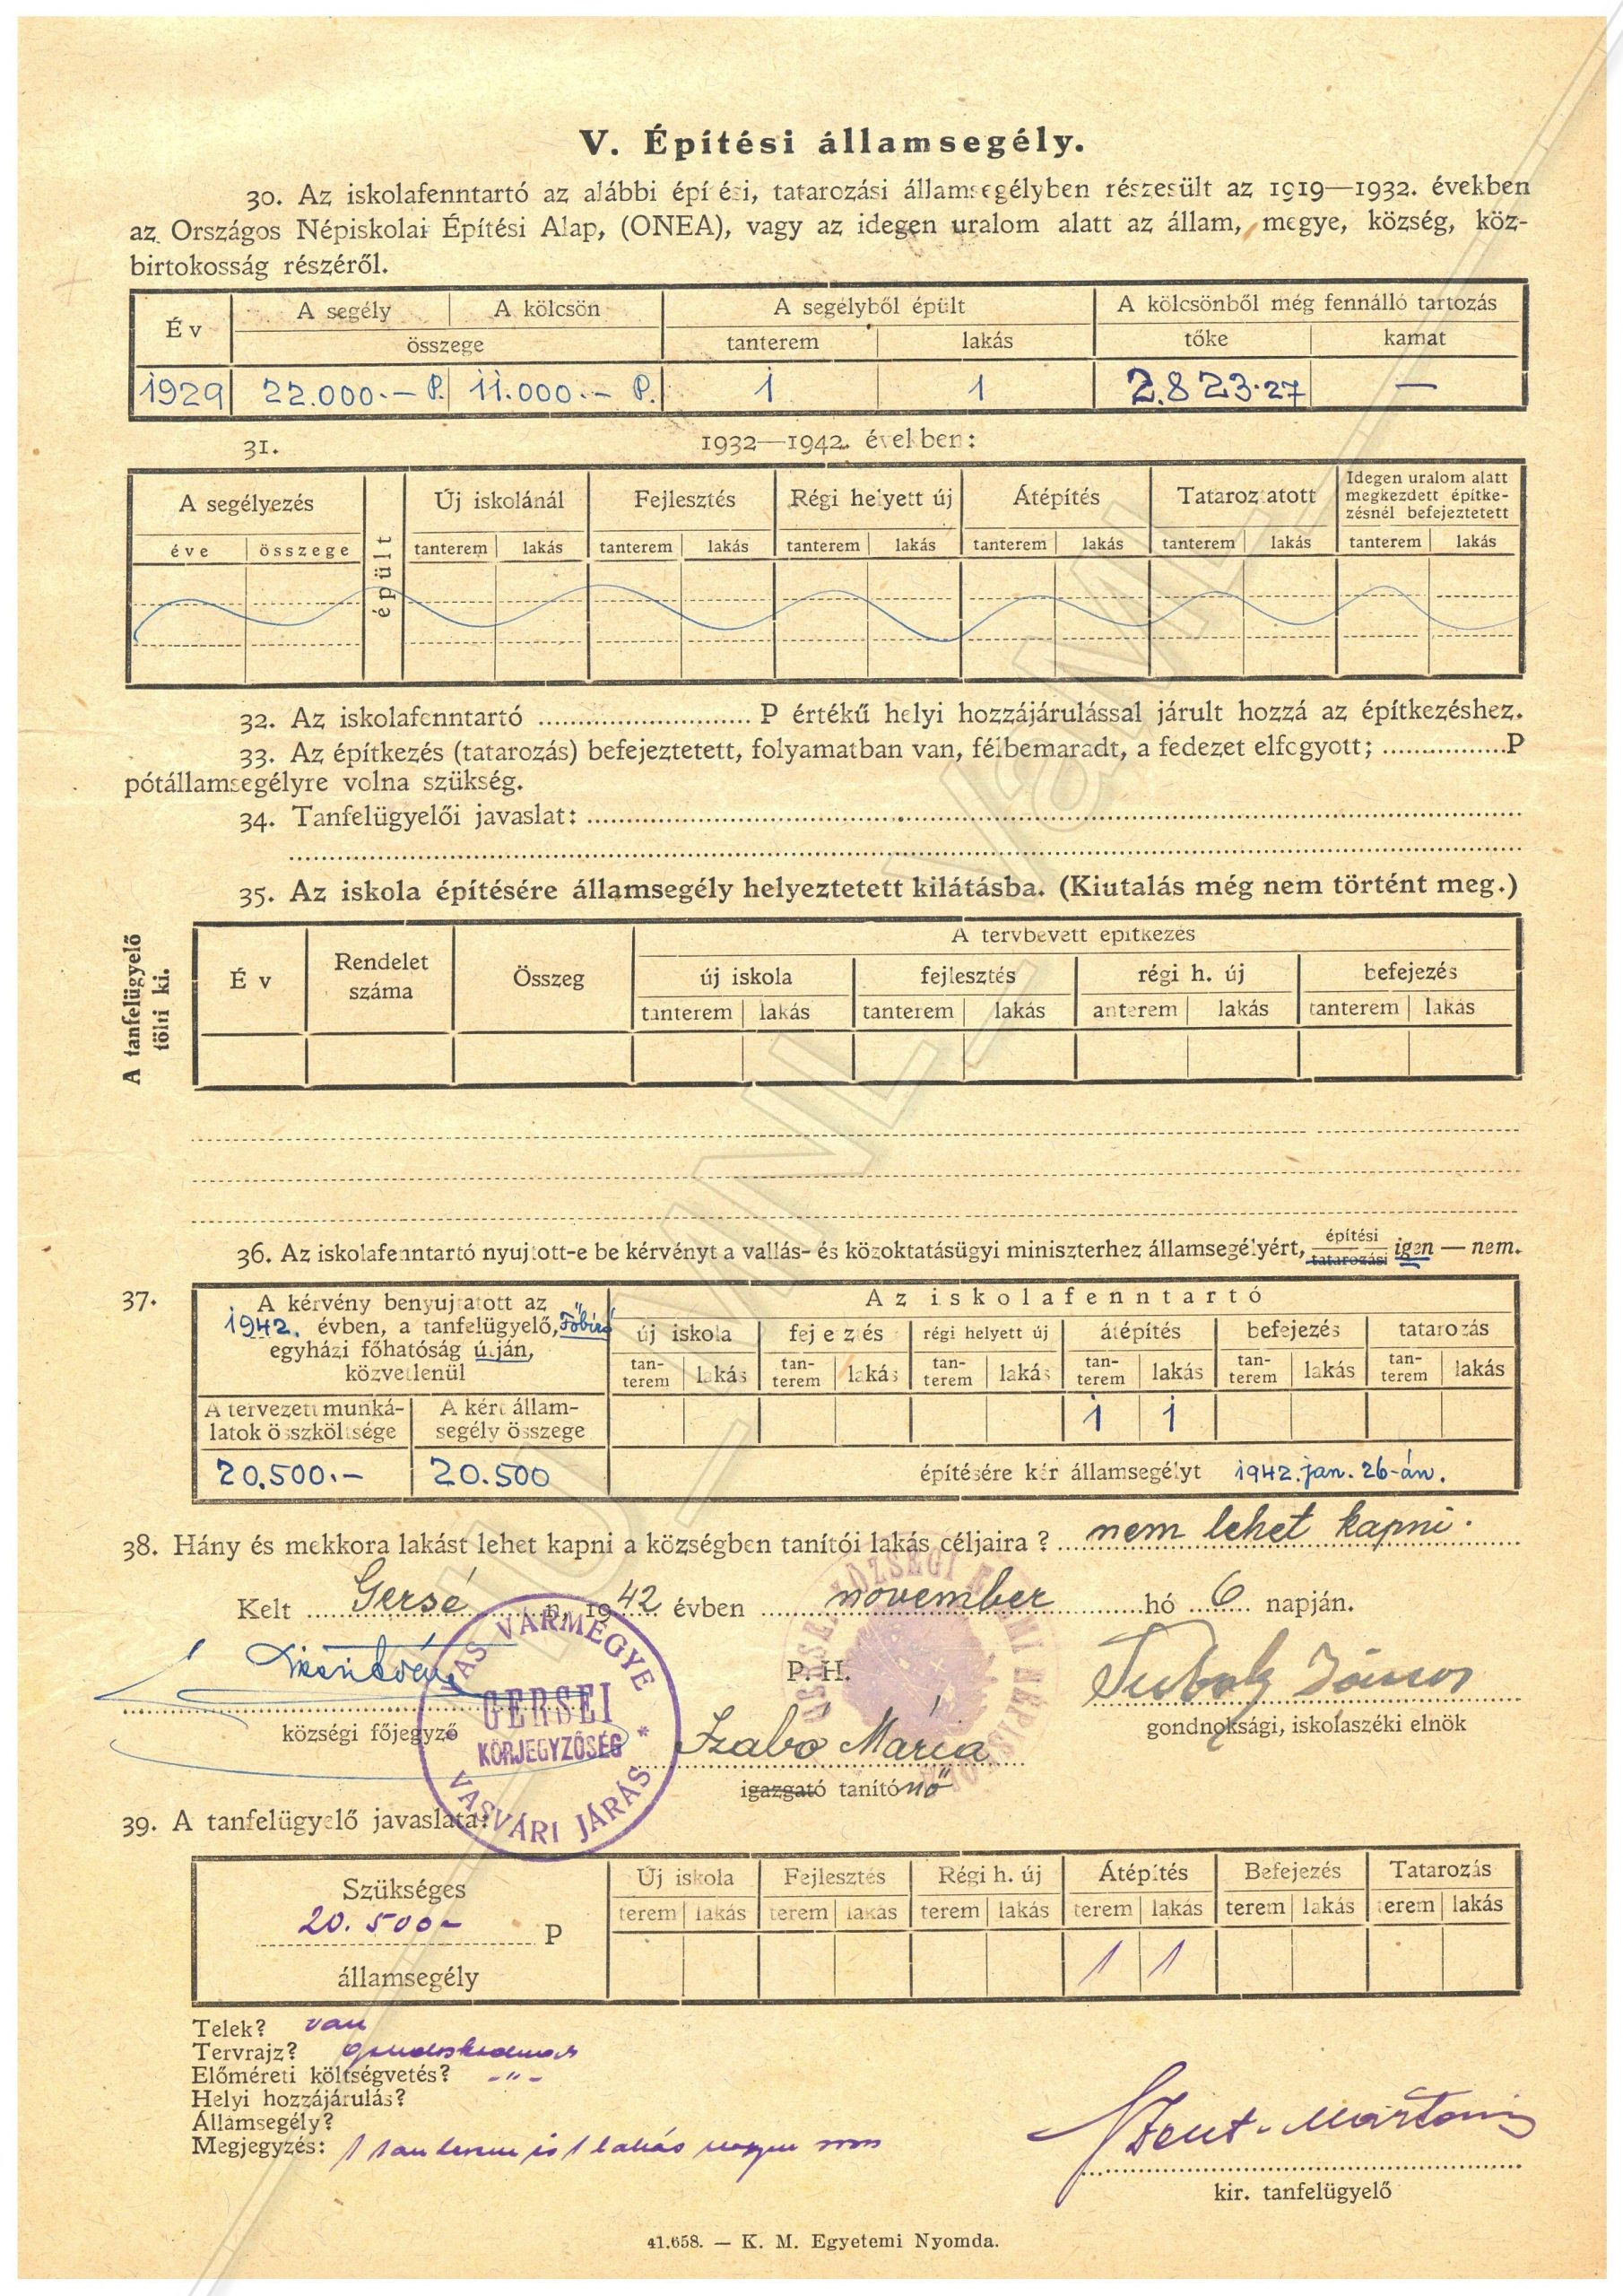 V. Építési államsegély.
30. Az iskolafenntartó az alábbi építési, tatarozási államsegélyben részesült az 1919—1932. években
az Országos Népiskolai Építési Alap, (ONEA), vagy az idegen uralom alatt az állam, megye, község, köz-
birtokosság részéről.
Év A segély A kölcsön A segélyből épült A kölcsönből még fennálló tartozás
összege tanterem lakás tőke kamat
1929 22.000.— P. 11.000.— P. 1 1 2.823.27 —
31. 1932—1942. években:
A segélyezés épült Új iskolánál Fejlesztés Régi helyett új Átépítés Tatarozatott Idegen uralom alatt
megkezdett építke-
zésnél befejeztetett
éve összege tanterem lakás tanterem lakás tanterem lakás tanterem lakás tanterem lakás tanterem lakás
32. Az iskolafenntartó ........................... P értékű helyi hozzájárulással járult hozzá az építkezéshez.
33. Az építkezés (tatarozás) befejeztetett, folyamatban van, félbemaradt, a fedezet elfogyott; ................P
pótállamsegélyre volna szükség.
34. Tanfelügyelői javaslat:
35. Az iskola építésére államsegély helyeztetett kilátásba. (Kiutalás még nem történt meg.)
A tanfelügyelő
tölti ki.
Év Rendelet
száma Összeg A tervbevett építkezés
új iskola fejlesztés régi h. új befejezés
tanterem lakás tanterem lakás anterem lakás tanterem lakás
36. Az iskolafenntartó nyujtott-e be kérvényt a vallás- és közoktatásügyi miniszterhez államsegélyért, építési
tatarozási igen — nem.
37. A kérvény benyujtatott az
1942. évben, a tanfelügyelő, Főbíró
egyházi főhatóság útján,
közvetlenül
Az iskolafenntartó
új iskola fej e z és régi helyett új átépítés befejezés tatarozás
tan-
terem lakás tan-
terem lakás tan-
terem lakás tan-
terem lakás tan-
terem lakás tan-
terem lakás
A tervezett munká-
latok összköltsége A kért állam-
segély összege
1 1
20.500.— 20.500 építésére kér államsegélyt 1942. jan. 26-án.
38. Hány és mekkora lakást lehet kapni a községben tanítói lakás céljaira? nem lehet kapni.
Kelt Gersé n, 1942 évben november hó 6 napján.
VAS VÁRMEGYE
GERSEI
KÖRJEGYZŐSÉG
VASVÁRI JÁRÁS *
P. H.
községi főjegyző
Szabó Mária
igazgató tanítónő
János
gondnoksági, iskolaszéki elnök
39. A tanfelügyelő javaslata:
Szükséges
20.500— P
államsegély
Új iskola Fejlesztés Régi h. új Átépítés Befejezés Tatarozás
terem lakás terem lakás terem lakás terem lakás terem lakás terem lakás
1 1
Telek? van
Tervrajz?
Előméreti költségvetés? -"-
Helyi hozzájárulás?
Államsegély?
Megjegyzés: 1 tanterem és 1 lakás
kir. tanfelügyelő
41.658. — K. M. Egyetemi Nyomda.
HU_MNL_VaML_